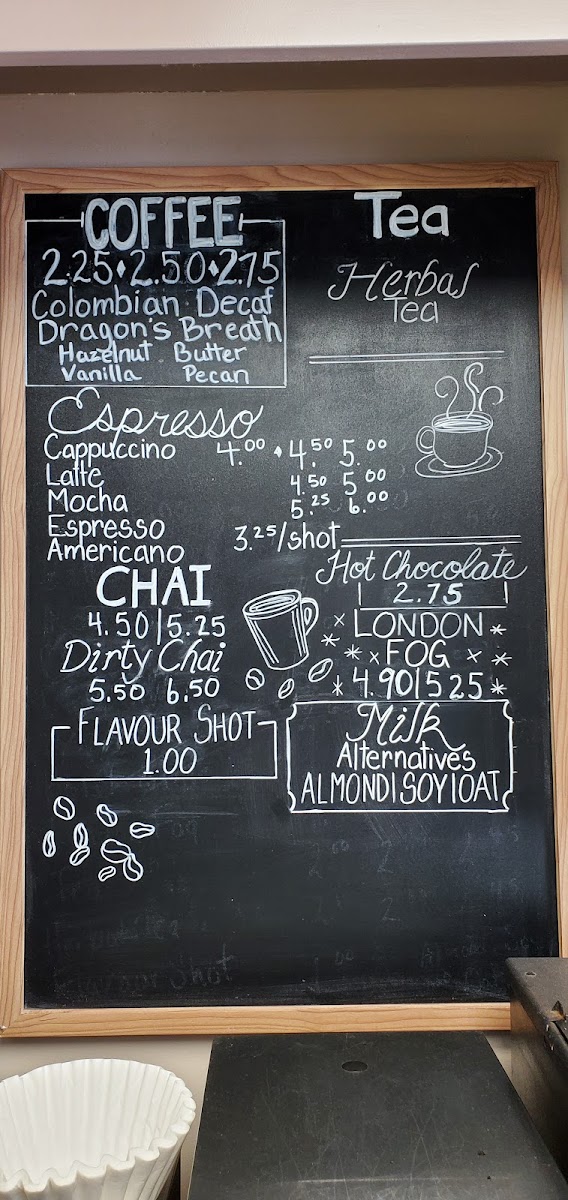 COFFEE
2.25•2.50•2.75
Colombian Decaf
Dragon's Breath
Hazelnut Butter
Vanilla Pecan
Tea
Herbal
Tea
Espresso
Cappuccino 4.00 • 4.50 5.00
Latte 4.50 5.00
Mocha 5.25 6.00
Espresso 3.25/shot
Americano
CHAI
4.50|5.25
Dirty Chai
5.50 6.50
FLAVOUR SHOT
1.00
Hot Chocolate
2.75
LONDON
FOG
4.90|5.25
Milk
Alternatives
ALMOND|SOY|OAT